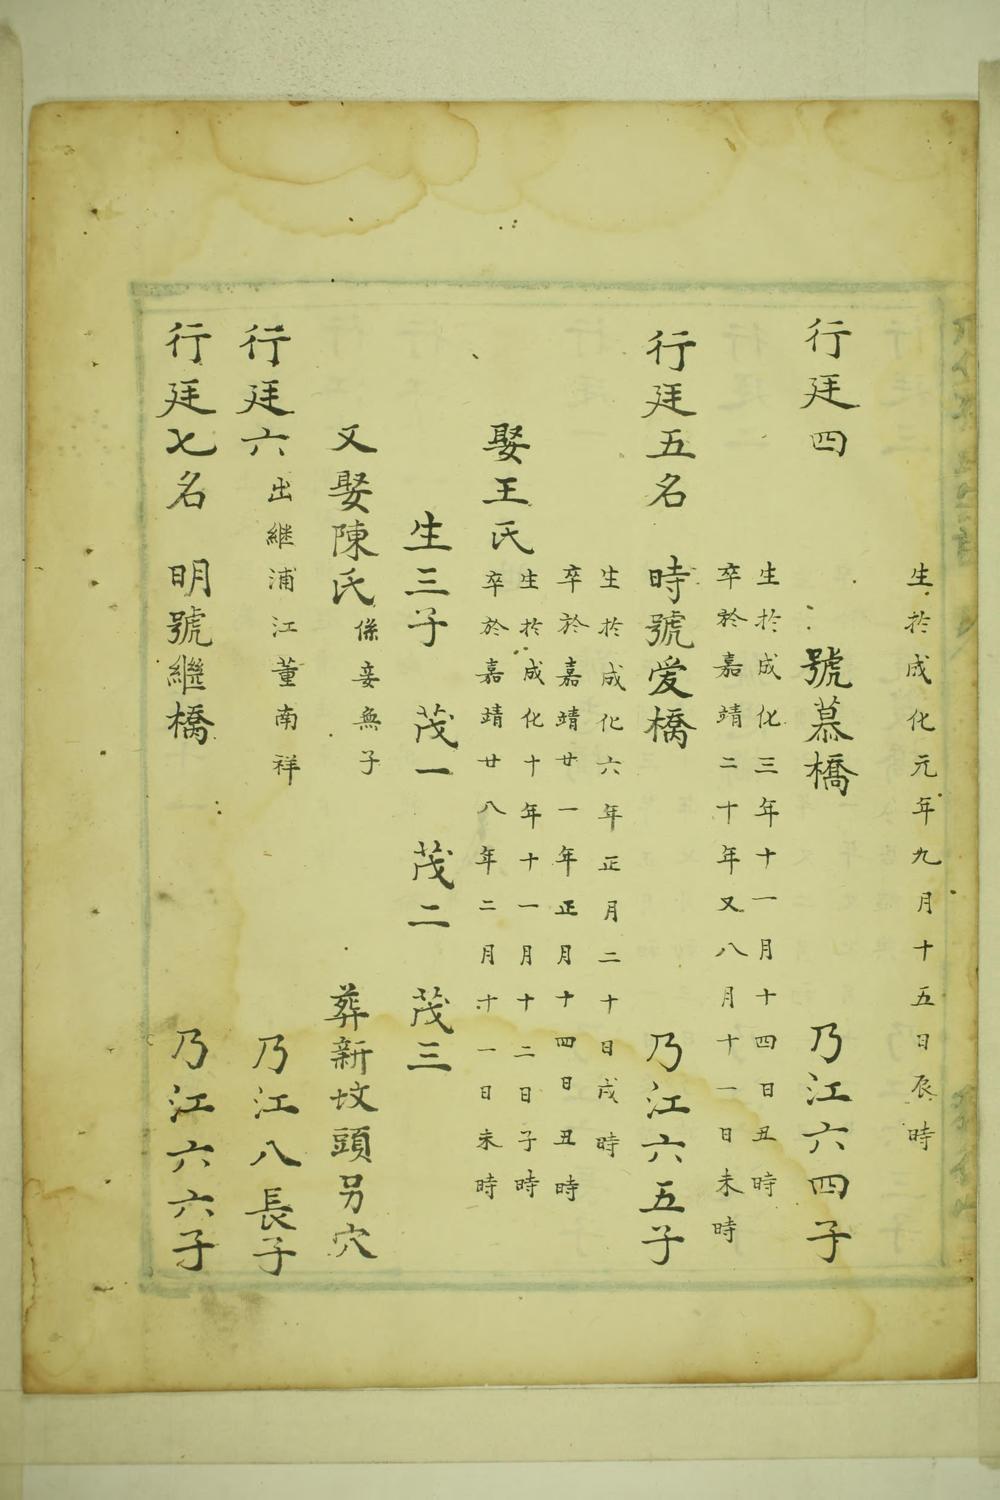 生於成化元年九月十五日辰時
行廷四 號慕橋 乃江六四子
生於成化三年十一月十四日丑時
卒於嘉靖二十年又八月十一日未時
行廷五名 時號爱橋 乃江六五子
生於成化六年正月二十日戌時
卒於嘉靖廿一年正月十四日丑時
娶王氏
生於成化十年十一月十二日子時
卒於嘉靖廿八年二月十一日未時
生三子 茂一 茂二 茂三
又娶陳氏係妾無子 葬新坟頭另穴
行廷六出継浦江董南祥 乃江八長子
行廷七名 明號繼橋 乃江六六子